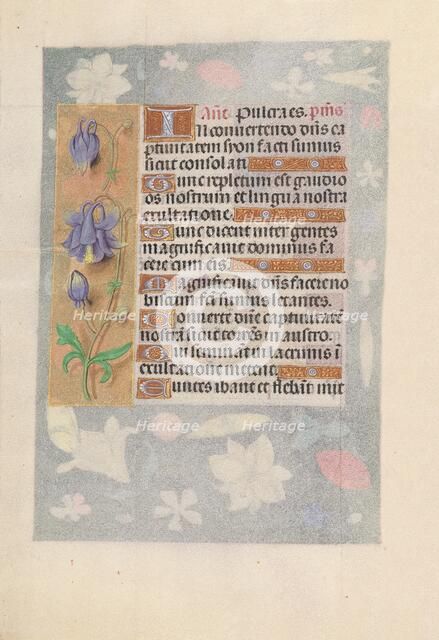 Añt Pulcra es. p̄ms
In convertendo dn̄s ca
ptivitatem syon facti sumus
sicut consolati
Tunc repletum est gaudio
os nostrum et lingua nostra
exultatione.
Tunc dicent inter gentes
magnificavit dominus fa
cere cum eis.
Magnificavit dn̄s facere no
biscum fc̄i sumus letantes.
Converte dn̄e captivitatē
nostrā sicut torrēs in austro.
Qui seminant in lacrimis ī
exultatione metent.
Euntes ibant et flebant mit
Heritage
Heritage
Heritage
Heritage
Heritage
Heritage